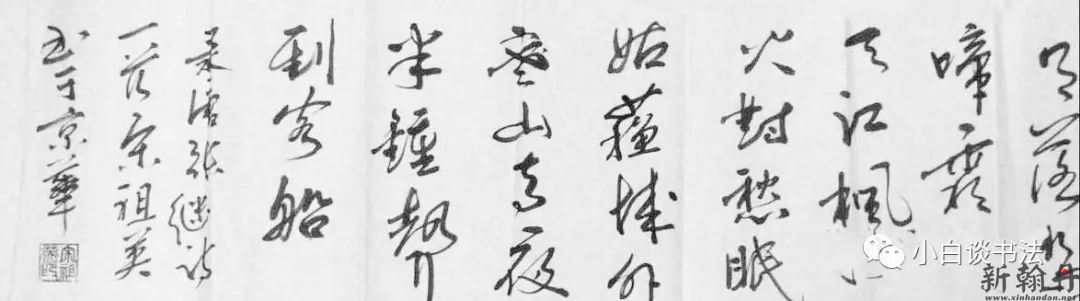 月落烏
啼霜
天江楓
火對愁眠
姑蘇城外
寒山寺夜
半鐘聲
到客船
录唐张继诗
一首宋祖英
书于京華
小白谈书法
新翰丹
www.xinhandan.net